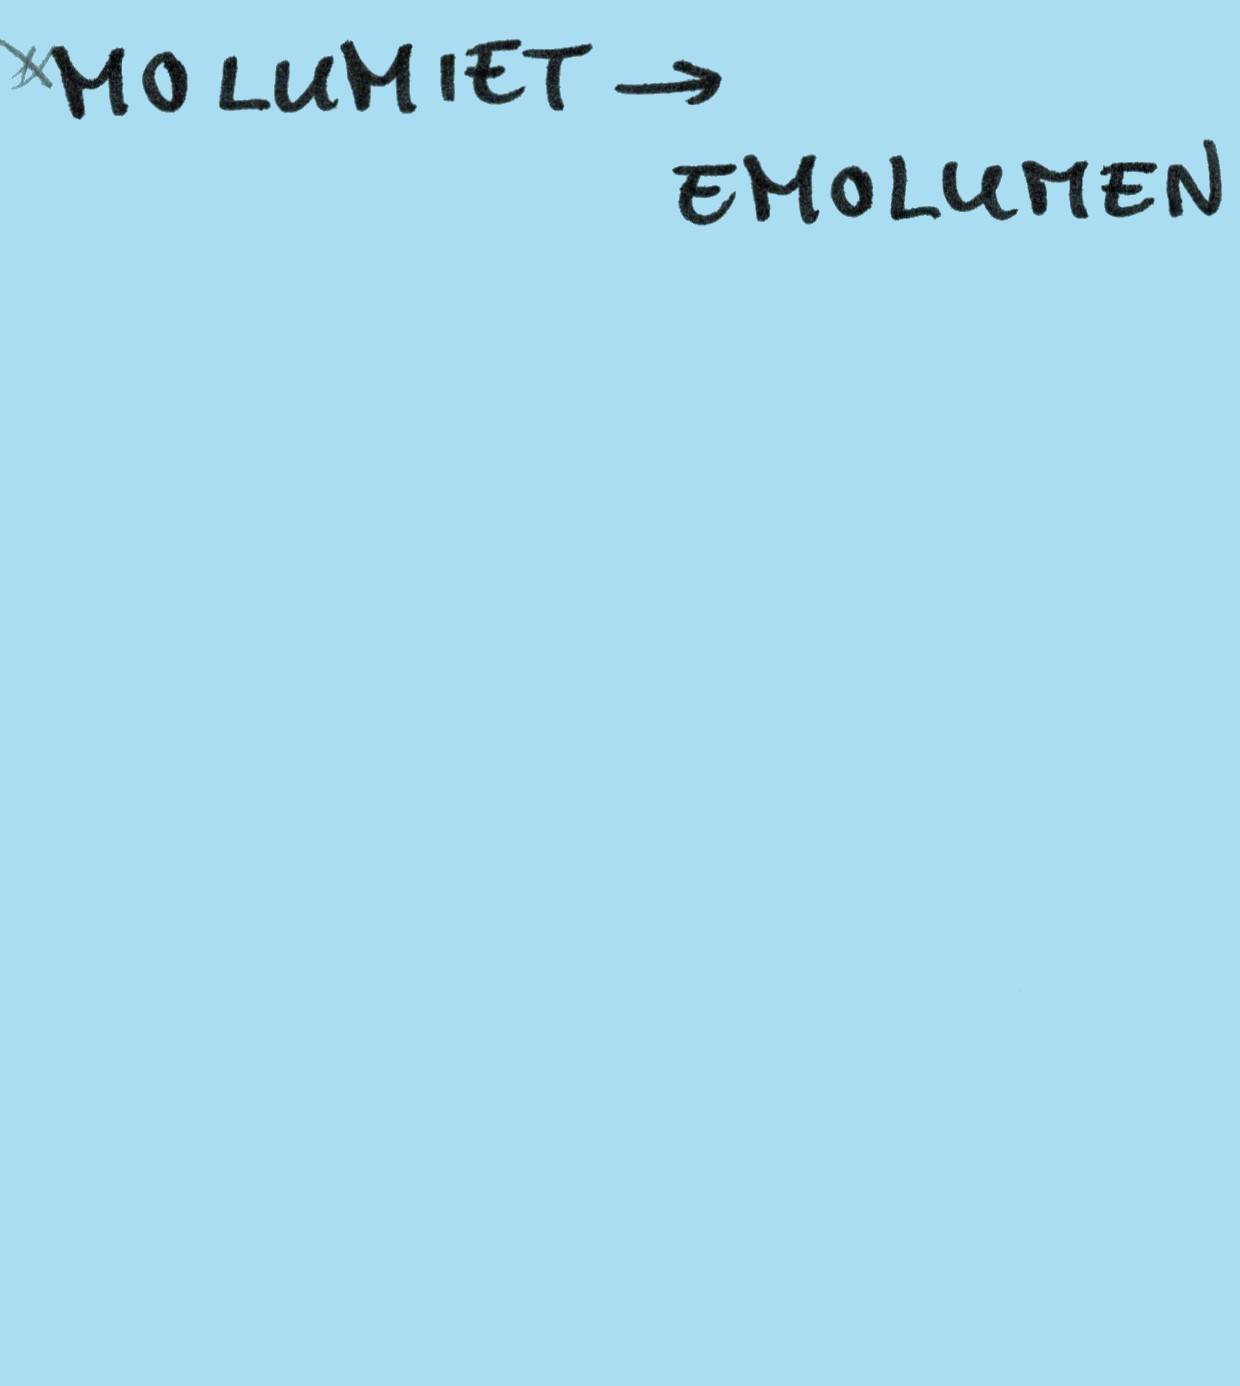 MOLUMIET →
EMOLUMEN